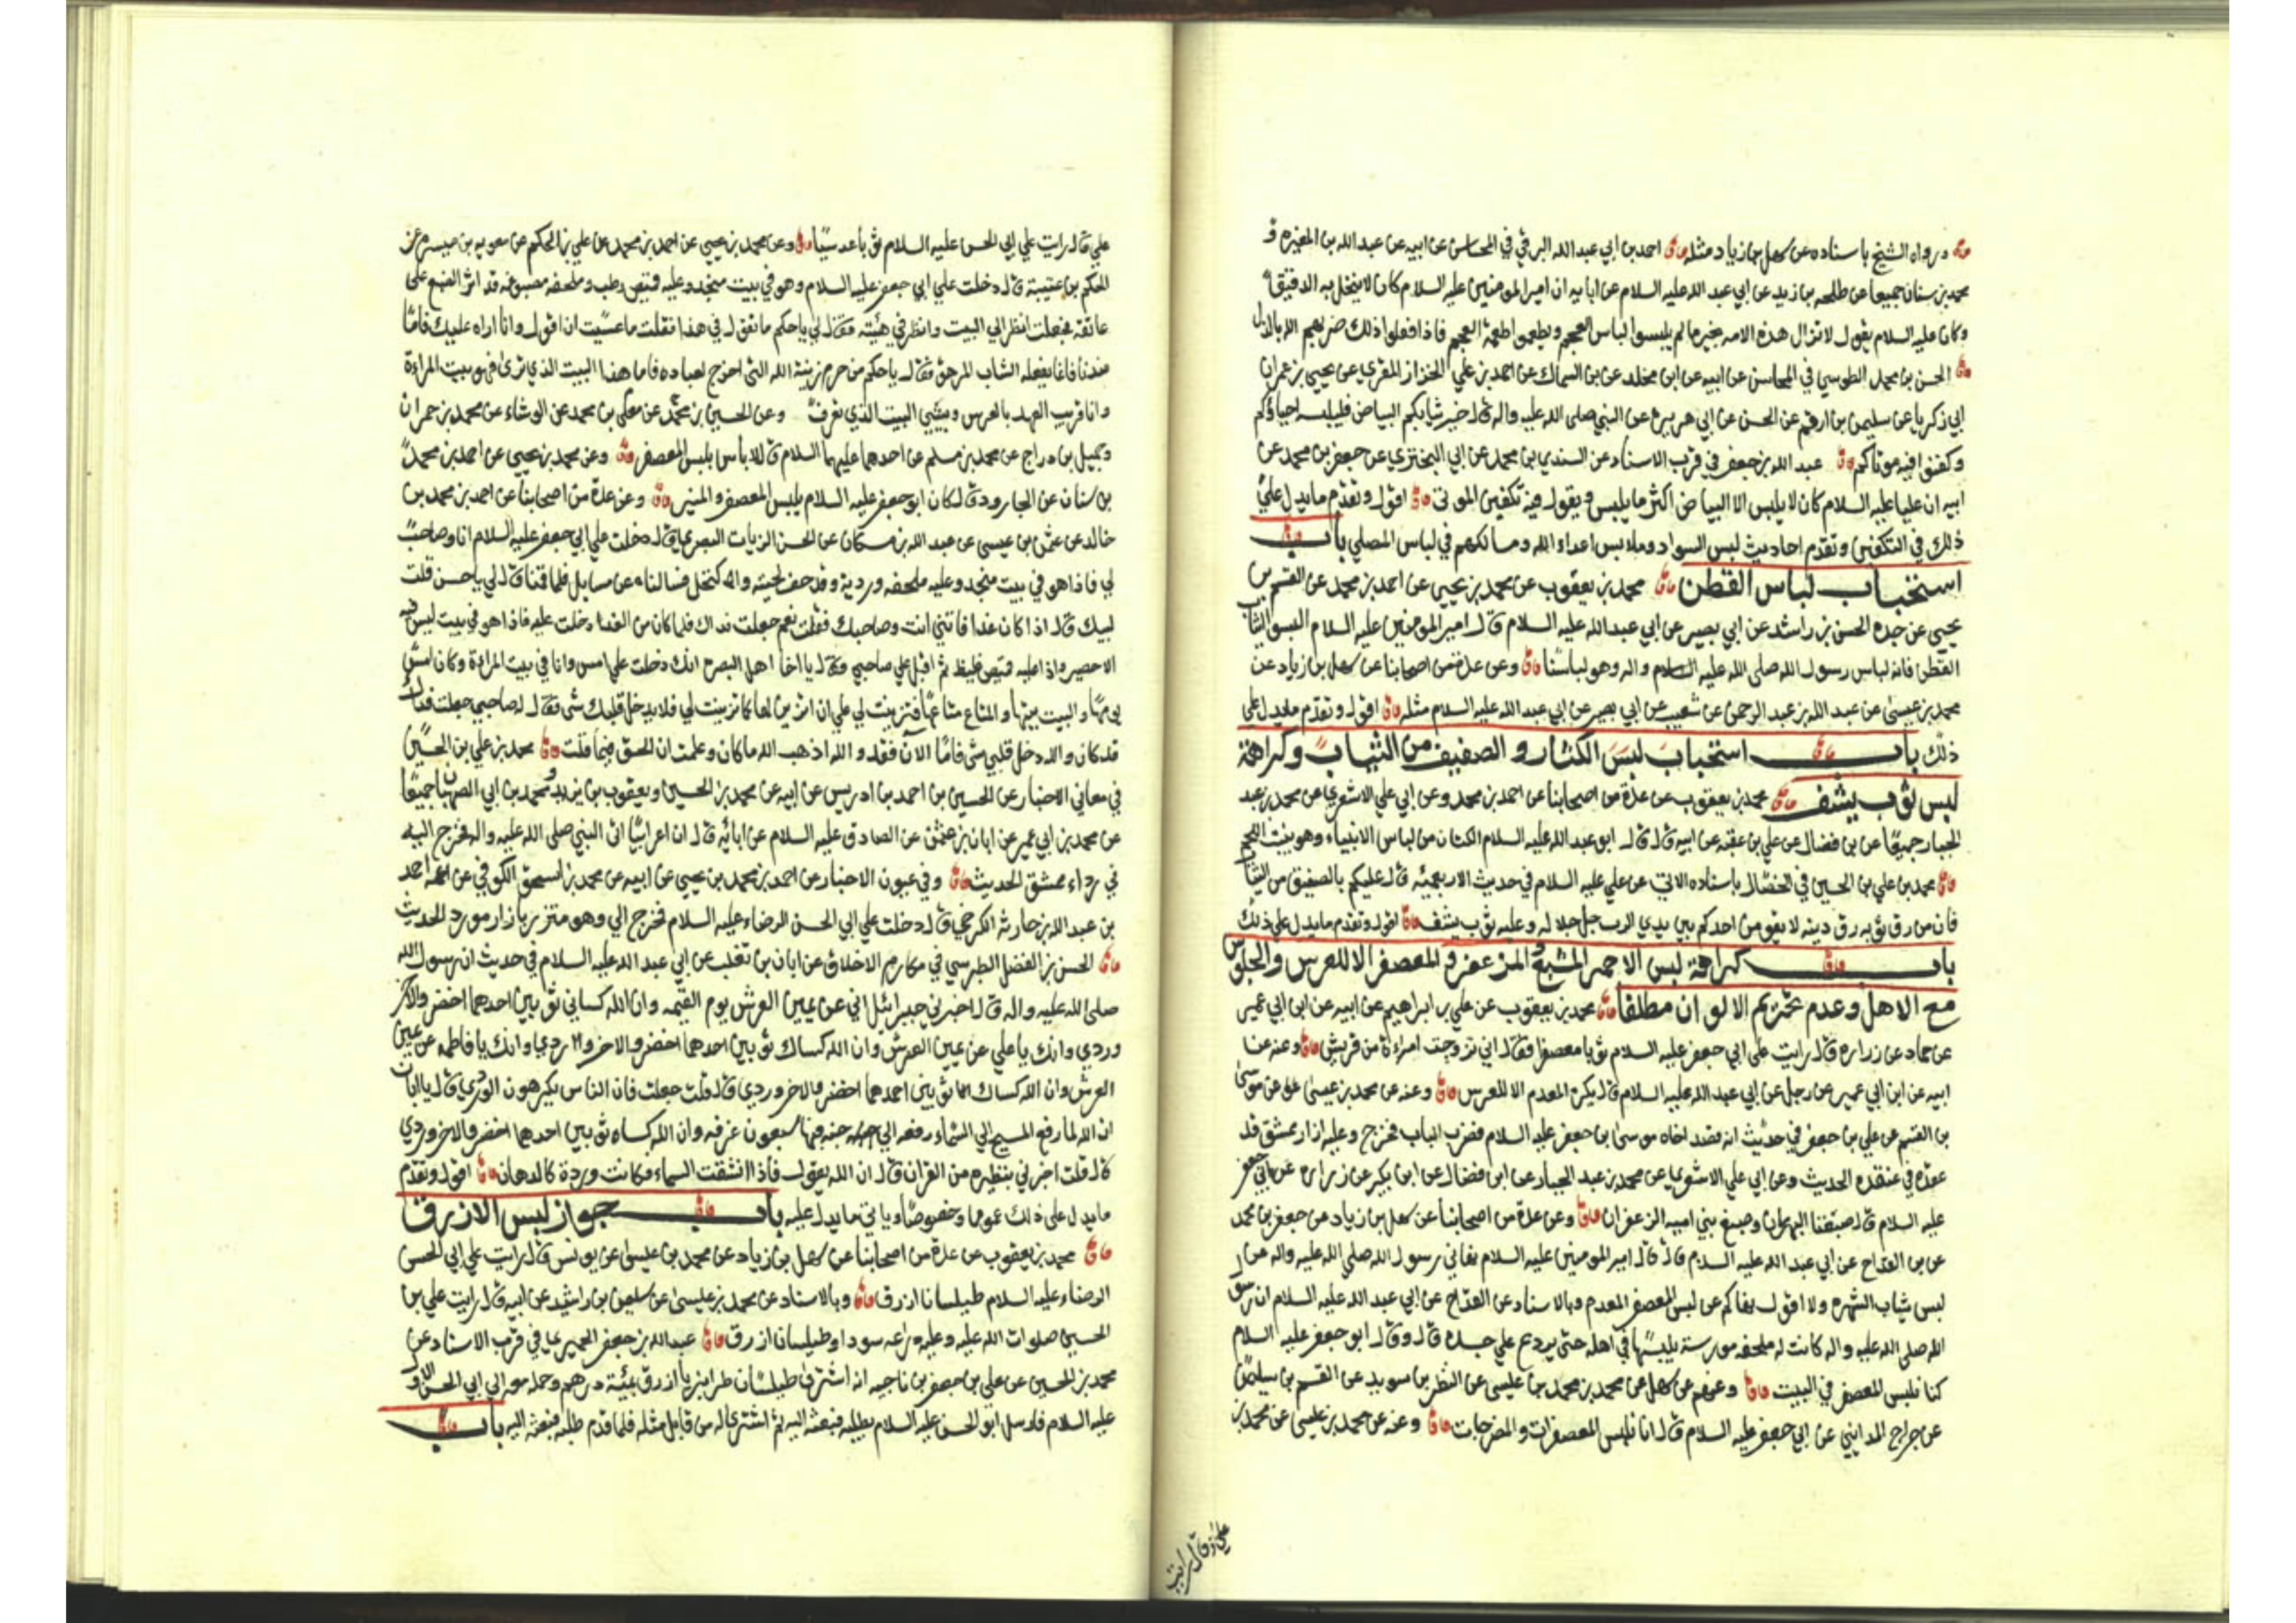 ورواه الشيخ باسناده عن سهل بن زياد مثله احمد بن ابي عبد الله البرقي في المحاسن عن ابيه عن عبد الله بن المغيره و
محمد بن سنان جميعا عن طلحه بن زيد عن ابي عبد الله عليه السلام عن ابايه ان امير المومنين عليه السلام كان لا ينخل له الدقيق
وكان عليه السلام يقول لا تزال هذه الامه بخير ما لم يلبسوا لباس العجم ويطعموا اطعمة العجم فاذا فعلوا ذلك ضربهم الله بالذل
الحسن بن محمد الطوسي في المجالس عن ابيه عن ابن مخلد عن بن السماك عن احمد بن علي الخزاز المقري عن يحيى بن عمران
ابي زكريا عن سليمن بن ارقم عن الحسن عن ابي هريره عن النبي صلى الله عليه واله قال خير ثيابكم البياض فليلبسه احياؤكم
وكفنوا فيه موتاكم عبد الله بن جعفر في قرب الاسناد عن السندي بن محمد عن ابي البختري عن جعفر بن محمد عن
ابيه ان عليا عليه السلام كان لا يلبس الا البياض اكثر ما يلبس ويقول فيه تكفين الموتى اقول وتقدم ما يدل على
ذلك في التكفين وتقدم احاديث لبس السواد وملابس اعداء الله ومسالكهم في لباس المصلي باب
استحباب لباس القطن محمد بن يعقوب عن محمد بن يحيى عن احمد بن محمد عن القسم بن
يحيى عن جده الحسن بن راشد عن ابي بصير عن ابي عبد الله عليه السلام قال امير المومنين عليه السلام البسوا الثياب
القطن فانه لباس رسول الله صلى الله عليه السلام واله وهو لباسنا وعن عدة من اصحابنا عن سهل بن زياد عن
محمد بن عيسى عن عبد الله بن عبد الرحمن عن شعيب عن ابي بصير عن ابي عبد الله عليه السلام مثله اقول وتقدم ما يدل على
ذلك باب استحباب لبس الكتان والصفيق من الثياب وكراهة
لبس ثوب يشف محمد بن يعقوب عن عدة من اصحابنا عن احمد بن محمد وعن ابي علي الاشعري عن محمد بن عبد
الجبار جميعا عن بن فضال عن علي بن عقبه عن ابيه قال قال ابو عبد الله عليه السلام الكتان من لباس الانبياء وهو ينبت اللحم
محمد بن علي بن الحسين في الخصال باسناده الاتي عن علي عليه السلام في حديث الاربعمئه قال عليكم بالصفيق من الثياب
فان من رق ثوبه رق دينه لا يقومن احدكم بين يدي الرب جل جلاله وعليه ثوب يشف اقول وتقدم ما يدل على ذلك
باب كراهة لبس الاحمر المشبع والمزعفر والمعصفر الا للعرس والجلوس
مع الاهل وعدم تحريم الالوان مطلقا محمد بن يعقوب عن علي بن ابراهيم عن ابيه عن ابن ابي عمير
عن حماد عن زراره قال رايت على ابي جعفر عليه السلام ثوبا معصفرا فقال اني تزوجت امراة من قريش وعنه عن
ابيه عن ابن ابي عمير عن رجل عن ابي عبد الله عليه السلام قال يكره المفدم الا للعرس وعنه عن محمد بن عيسى عن موسى
بن القسم عن علي بن جعفر في حديث انه قصد اخاه موسى بن جعفر عليه السلام فضرب الباب فخرج وعليه ازار ممشق قد
عقده في عنقه الحديث وعن ابي علي الاشعري عن محمد بن عبد الجبار عن ابن فضال عن ابن بكير عن زراره عن ابي جعفر
عليه السلام قال صبغنا البهرمان وصبغ بني اميه الزعفران وعن عدة من اصحابنا عن سهل بن زياد عن جعفر بن محمد
عن بن القداح عن ابي عبد الله عليه السلام قال قال امير المومنين عليه السلام نهاني رسول الله صلى الله عليه واله عن
لبس ثياب الشهره ولا اقول نهاكم عن لبس المعصفر المفدم وبالاسناد عن القداح عن ابي عبد الله عليه السلام ان رسول
الله صلى الله عليه واله كانت له ملحفه مورسة يلبسها في اهله حتى يردع على جسده قال وقال ابو جعفر عليه السلام
كنا نلبس المعصفر في البيت وعنهم عن سهل عن محمد بن محمد بن عيسى عن النظر بن سويد عن القسم بن سليمن
عن جراح المدايني عن ابي جعفر عليه السلام قال انا نلبس المعصفرات والمضرجات وعنه عن محمد بن عيسى عن محمد بن
علي قال رايت
علي قال رايت على ابي الحسن عليه السلام ثوبا عدسيا وعن محمد بن يحيى عن احمد بن محمد عن علي بن الحكم عن معويه بن ميسره عن
الحكم بن عتيبة قال دخلت على ابي جعفر عليه السلام وهو في بيت منجد وعليه قميص رطب وملحفه مصبوغه قد اثر الصبغ على
عاتقه فجعلت انظر الى البيت وانظر في هيئته فقال لي يا حكم ما تقول في هذا فقلت ما عسيت ان اقول وانا اراه عليك فاما
عندنا فانما يفعله الشاب المرهق فقال يا حكم من حرم زينة الله التي اخرج لعباده فاما هذا البيت الذي ترى فهو بيت المراة
وانا قريب العهد بالعرس وبيتي البيت الذي تعرف وعن الحسين بن محمد عن معلى بن محمد عن الوشاء عن محمد بن حمران
وجميل بن دراج عن محمد بن مسلم عن احدهما عليهما السلام قال لا باس بلبس المعصفر وعن محمد بن يحيى عن احمد بن محمد
بن سنان عن الجارود قال كان ابو جعفر عليه السلام يلبس المعصفر والمنير وعن عدة من اصحابنا عن احمد بن محمد بن
خالد عن عثمن بن عيسى عن عبد الله بن مسكان عن الحسن الزيات البصري قال دخلت على ابي جعفر عليه السلام انا وصاحب
لي فاذا هو في بيت منجد وعليه ملحفه وردية وقد حف لحيته واكتحل فسالناه عن مسايل فلما قمنا قال لي يا حسن قلت
لبيك قال اذا كان غدا فاتني انت وصاحبك فقلت نعم جعلت فداك فلما كان من الغد دخلت عليه فاذا هو في بيت ليس فيه
الا حصير واذا عليه قميص غليظ ثم اقبل على صاحبي فقال يا اخا اهل البصره انك دخلت علي امس وانا في بيت المراة وكان امس
يومها والبيت بيتها والمتاع متاعها فتزينت لي على ان اتزين لها كما تزينت لي فلا يدخل قلبك شي فقال له صاحبي جعلت فداك
قد كان والله دخل قلبي شي فاما الان فقد والله اذهب الله ما كان وعلمت ان الحق فيما قلت محمد بن علي بن الحسين
في معاني الاخبار عن الحسين بن احمد بن ادريس عن ابيه عن محمد بن الحسين ويعقوب بن يزيد ومحمد بن ابي الصهبان جميعا
عن محمد بن ابي عمير عن ابان بن عثمن عن الصادق عليه السلام عن ابائه قال ان اعرابيا اتى النبي صلى الله عليه واله فخرج اليه
في رداء ممشق الحديث وفي عيون الاخبار عن احمد بن محمد بن يحيى عن ابيه عن محمد بن اسحق الكوفي عن عمه احمد
بن عبد الله بن حارثه الكرخي قال دخلت على ابي الحسن الرضاء عليه السلام فخرج الي وهو متزر بازار مورد الحديث
الحسن بن الفضل الطبرسي في مكارم الاخلاق عن ابان بن تغلب عن ابي عبد الله عليه السلام في حديث ان رسول الله
صلى الله عليه واله قال اخبرني جبرائيل اني عن يمين العرش يوم القيمه وان الله كساني ثوبين احدهما اخضر والاخر
وردي وانك يا علي عن يمين العرش وان الله كساك ثوبين احدهما اخضر والاخر وردي وانك يا فاطمه عن يمين
العرش وان الله كساك ثوبين احدهما اخضر والاخر وردي قال قلت جعلت فان الناس يكرهون الوردي قال يا ابان
ان الله لما رفع المسيح الى السماء رفعه الى جنه فيها سبعون غرفه وان الله كساه ثوبين احدهما اخضر والاخر وردي
قال قلت اخبرني بنظيره من القران قال ان الله يقول فاذا انشقت السماء وكانت وردة كالدهان اقول وتقدم
ما يدل على ذلك عموما وخصوصا وياتي ما يدل عليه باب جواز لبس الازرق
محمد بن يعقوب عن عدة من اصحابنا عن سهل بن زياد عن محمد بن عيسى عن يونس قال رايت على ابي الحسن
الرضاء عليه السلام طيلسانا ازرق وبالاسناد عن محمد بن عيسى عن سليمن بن راشيد عن ابيه قال رايت علي بن
الحسين صلوات الله عليه وعليه دراعه سودا وطيلسان ازرق عبد الله بن جعفر الحميري في قرب الاسناد عن
محمد بن الحسين عن علي بن جعفر بن ناجيه انه اشترى طيلسان طرازيا ازرق بمئة درهم وحمله معه الى ابي الحسن الاول
عليه السلام فارسل ابو الحسن عليه السلام يطلبه فبعث اليه ثم اشترى له من قابل مثله فلما قدم طلبه فبعث اليه باب